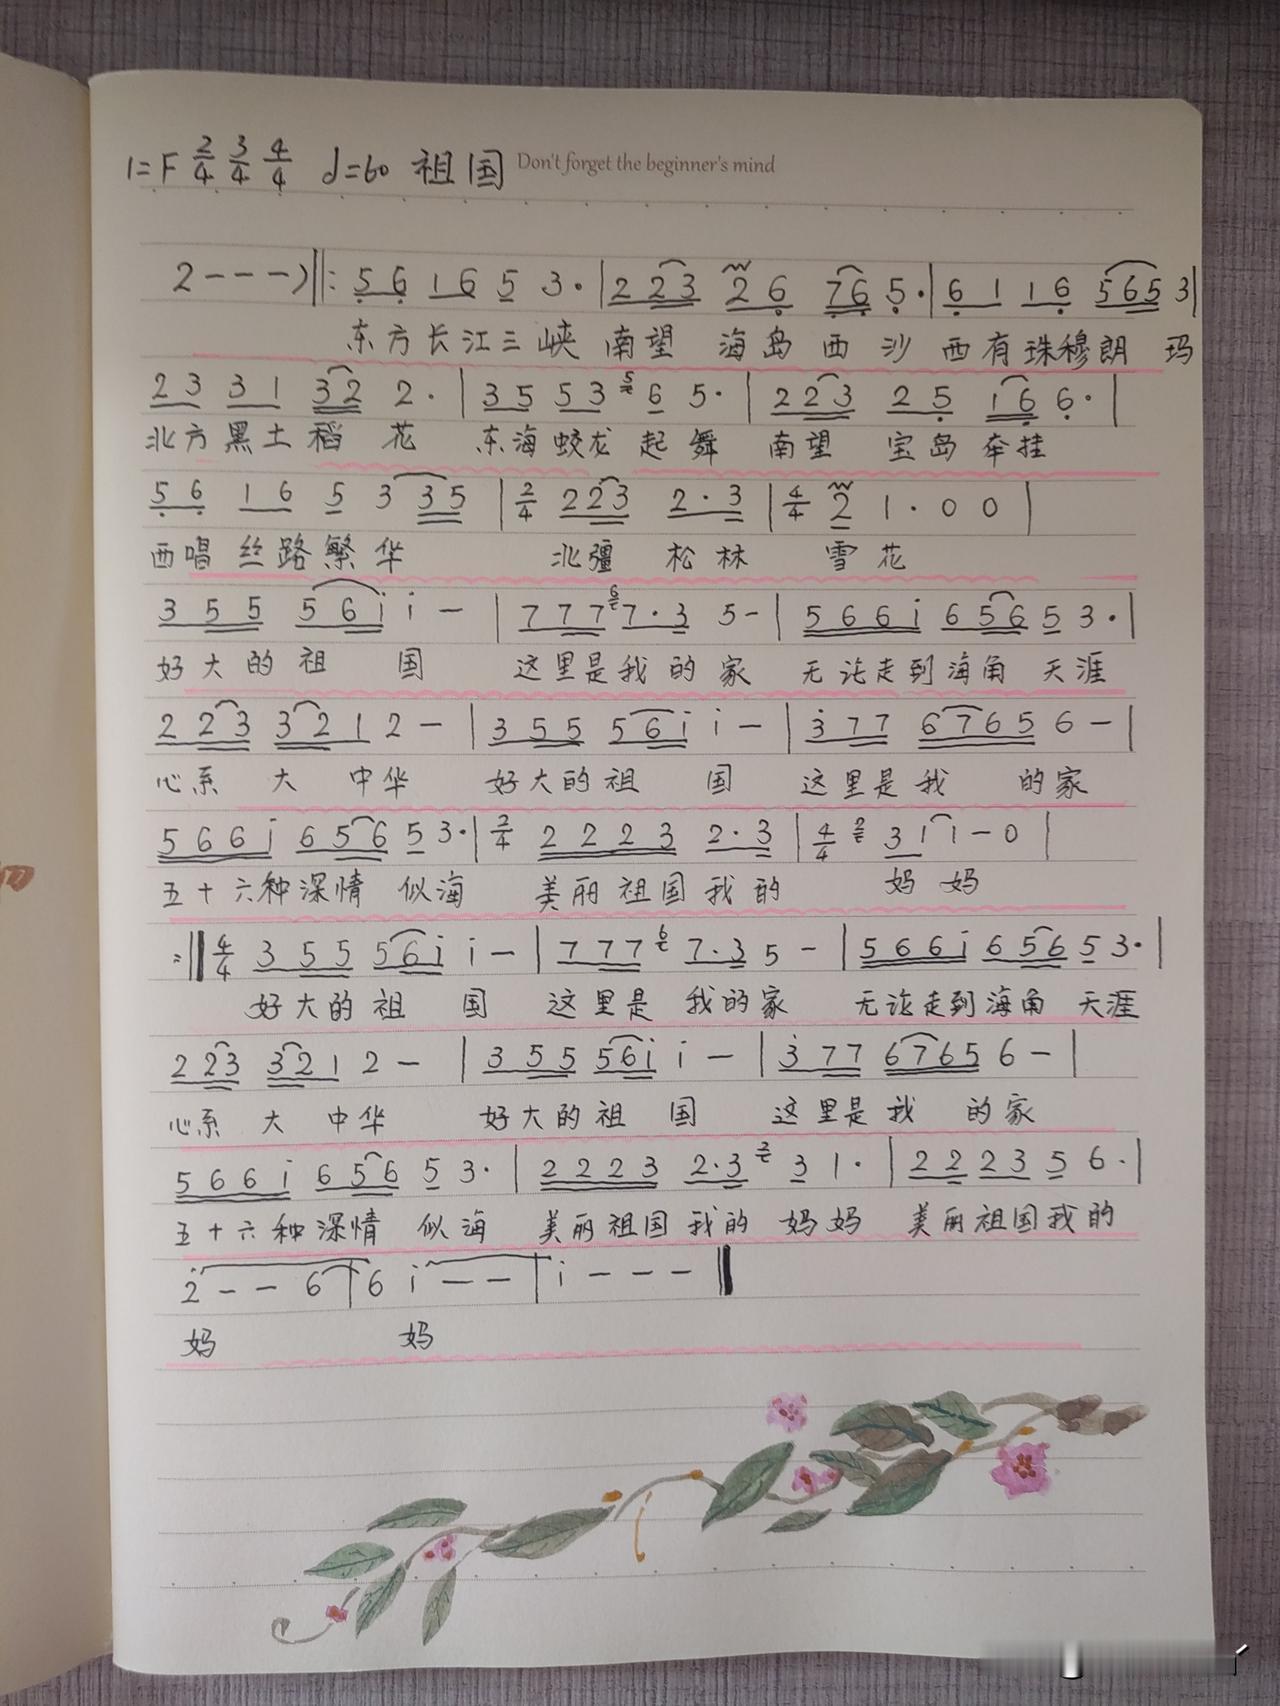 1=F 2/4 3/4 4/4 ♩=60 祖国 Don't forget the beginner's mind
2 - - - )‖: 5 6 1 6 5 3· | 2 2 3 2 6 7 6 5· | 6 1 1 6 5 6 5 3 |
东方长江三峡 南望 海岛西沙 西有珠穆朗玛
2 3 3 1 3 2 2· | 3 5 5 3 5 6 5· | 2 2 3 2 5 1 6 6· |
北方黑土稻花 东海蛟龙起舞 南望 宝岛牵挂
5 6 1 6 5 3 3 5 | 2/4 2 2 3 2· 3 | 4/4 2 1· 0 0 |
西唱丝路繁华 北疆 松林 雪花
3 5 5 5 6 i i - | 7 7 7 6 7· 3 5 - | 5 6 6 i 6 5 6 5 3· |
好大的祖 国 这里是我的家 无论走到海角 天涯
2 2 3 3 2 1 2 - | 3 5 5 5 6 i i - | 3 7 7 6 7 6 5 6 - |
心系 大 中华 好大的祖 国 这里是我 的家
5 6 6 i 6 5 6 5 3· | 2/4 2 2 2 3 2· 3 | 4/4 2 3 1 1 - 0 |
五十六种深情 似海 美丽祖国我的 妈妈
:‖ 4/4 3 5 5 5 6 i i - | 7 7 7 6 7· 3 5 - | 5 6 6 i 6 5 6 5 3· |
好大的祖 国 这里是 我的家 无论走到海角 天涯
2 2 3 3 2 1 2 - | 3 5 5 5 6 i i - | 3 7 7 6 7 6 5 6 - |
心系 大 中华 好大的祖 国 这里是我 的家
5 6 6 i 6 5 6 5 3· | 2 2 2 3 2· 3 2 3 1· | 2 2 2 3 5 6· |
五十六种深情 似海 美丽祖国我的 妈妈 美丽祖国我的
2 - - 6 | 6 i - - | i - - - ‖
妈 妈